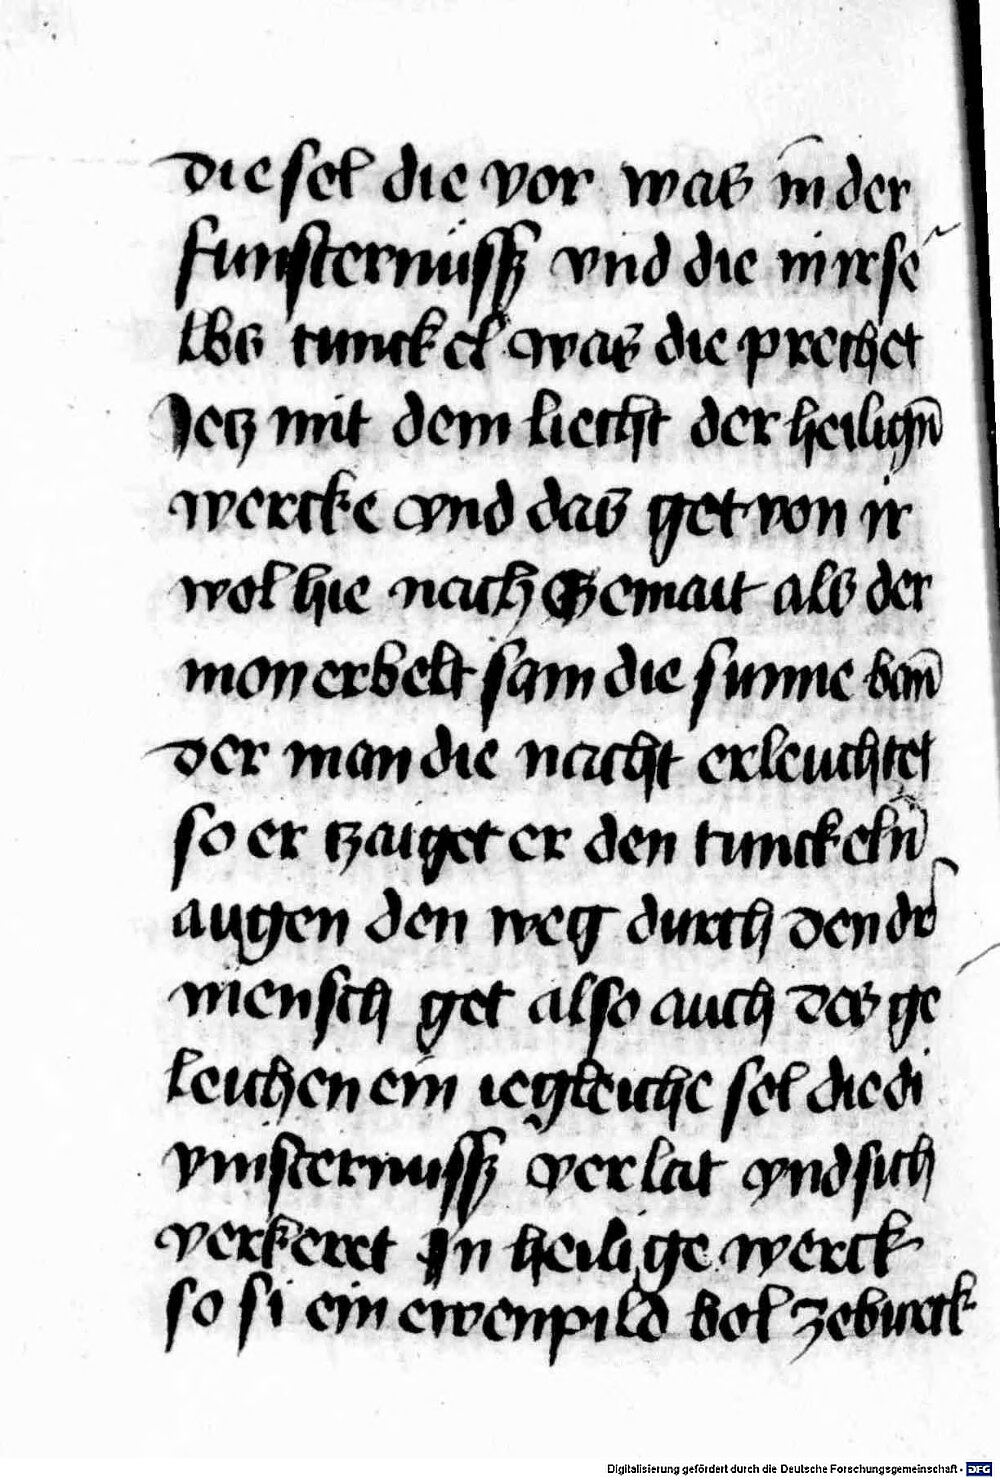 die sel die vor was in der
funsternüssz vnd die in ir se
lbs tunckel was die prechet
Jetz mit dem liecht der heilign̄
wercke vnd das get von ir
wol hie nach gemait als der
mon erbelt sam die sunne bān
der man die nacht erleuchtet
so er tzaiget er den tunckeln̄
augen den weg durch den dˢ
mensch get also auch des ge
leichen ein iegleiche sel die di
vinsternussz verlat vnd sich
verkeret In heilige werck
so si ein ewenpild bol zeburck
Digitalisierung gefördert durch die Deutsche Forschungsgemeinschaft - DFG